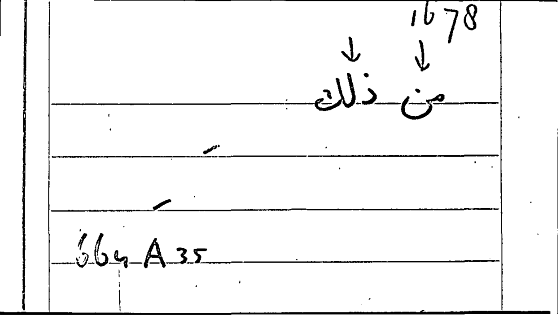 1678
من ذلك
664 A 35